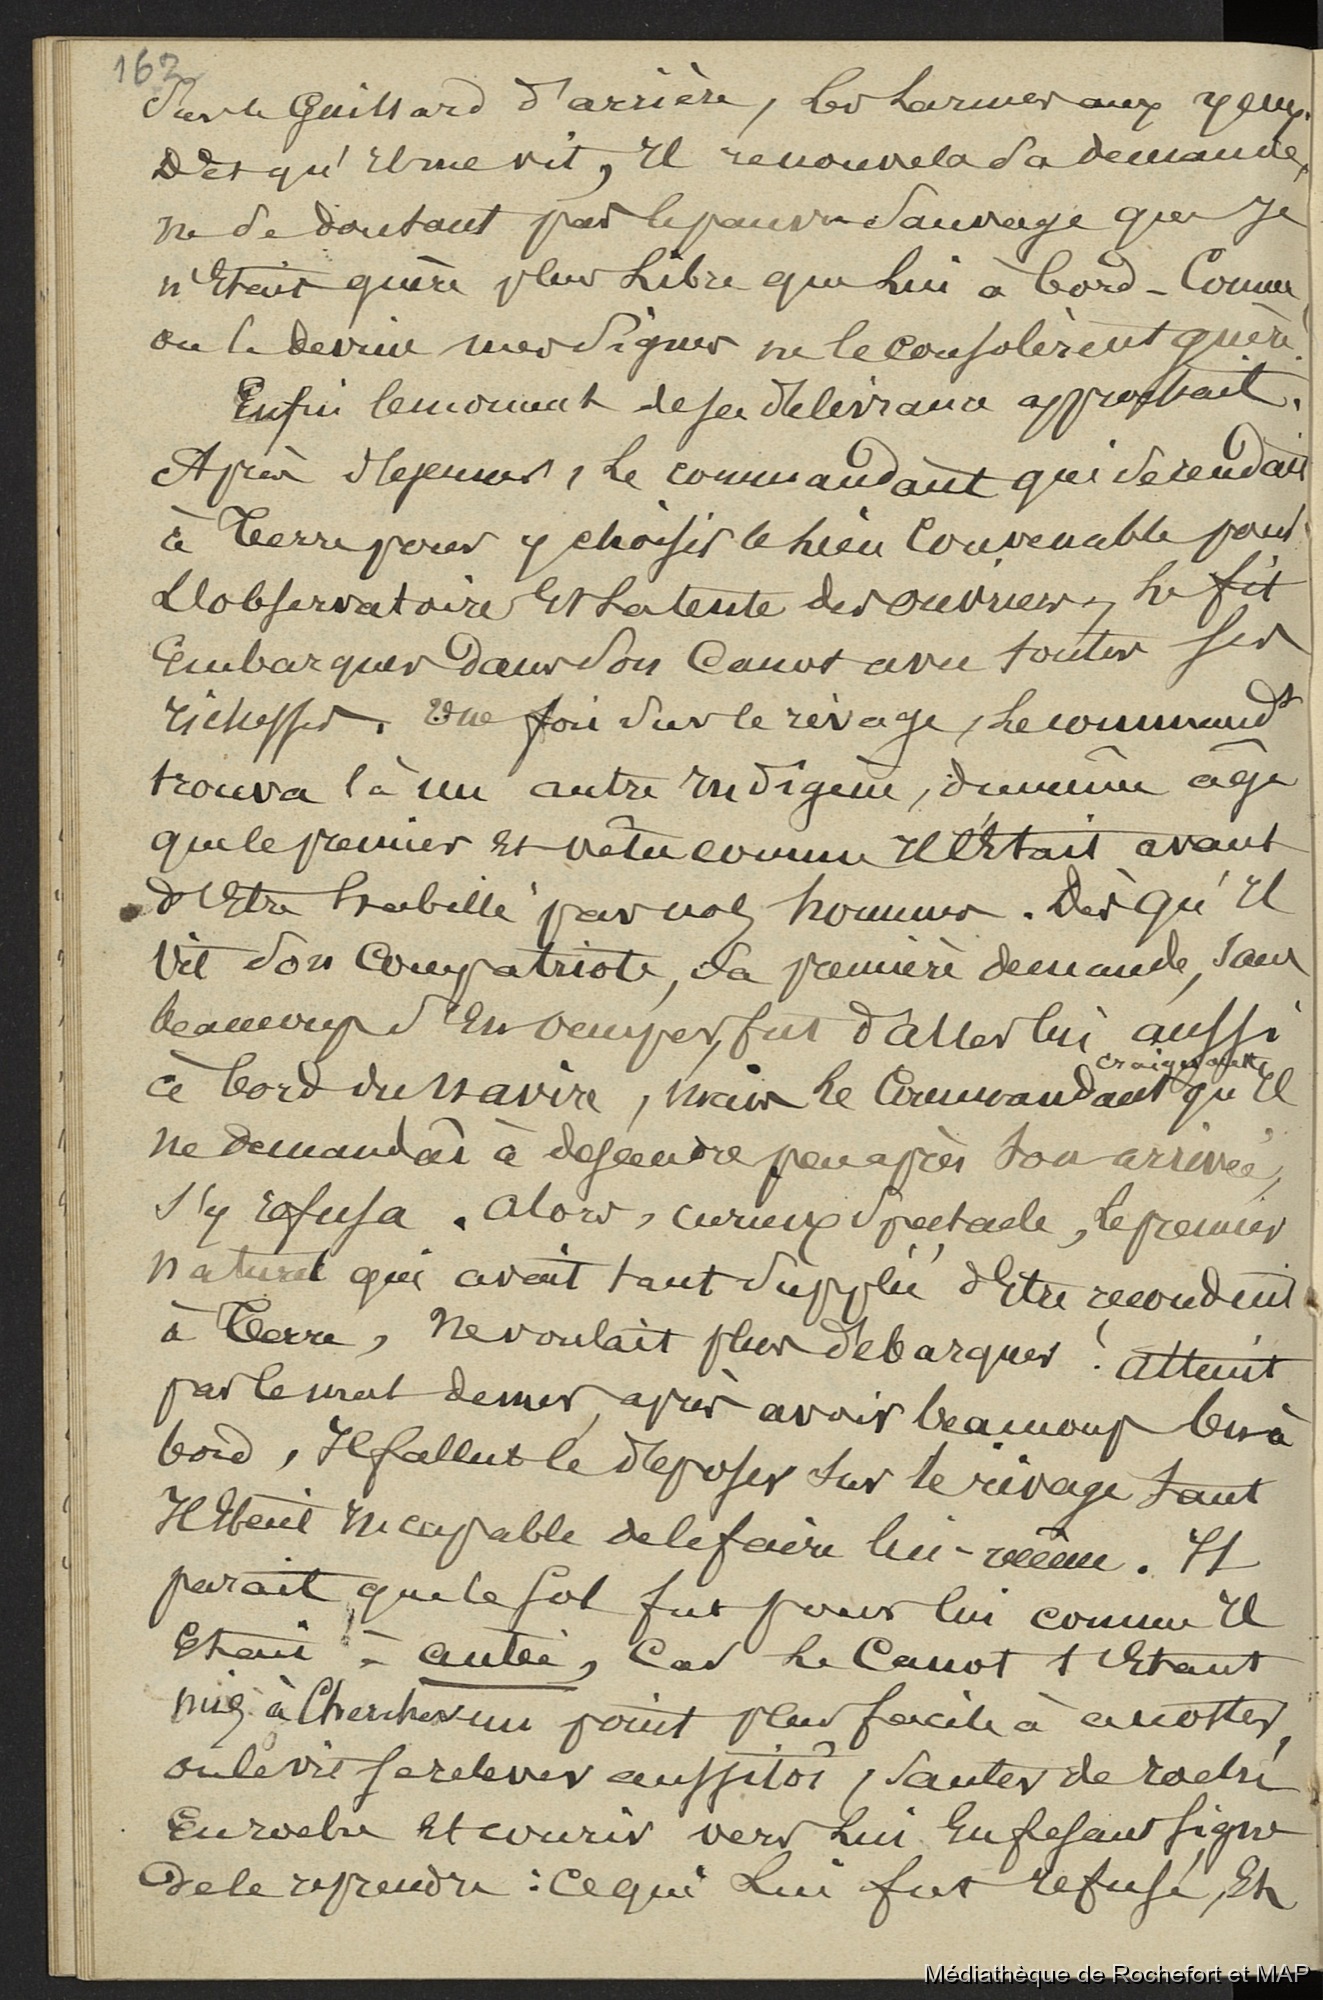 162
sur le Gaillard d'arrière, les larmes aux yeux.
Dès qu'il me vit, Il renouvela sa demande,
ne se doutant pas le pauvre sauvage que je
n'Etais guère plus Libre que Lui à bord - Comme
on le devine mes signes ne le consolèrent guère.
Enfin le moment de sa délivrance approchait.
Après déjeuner, Le commandant qui se rendait
à Terre pour y choisir le Lieu Convenable pour
L'observatoire Et La tente des ouvriers, Le fit
Embarquer dans son Canot avec toutes ses
richesses. Une fois sur le rivage, Le command<sup>t</sup>
trouva là un autre Indigène, du même âge
que le premier Et vêtu comme Il l'Etait avant
d'Etre habillé par nos hommes. Dès qu'Il
vit son Compatriote, sa première demande, sans
beaucoup s'En occuper, fut d'aller lui aussi
à bord du Navire, mais Le Commandant craignant qu'Il
ne demandât à descendre peu après son arrivée,
s'y refusa. Alors, curieux spectacle, Le premier
naturel qui avait tant supplié d'Etre reconduit
à Terre, Ne voulait plus débarquer! atteint
par le mal de mer, après avoir beaucoup bu à
bord, Il fallut le déposer sur le rivage tant
Il Etait Incapable de le faire lui-même. Il
parait que le sol fut pour lui comme Il
Etait à antée, Car Le Canot s'Etant
mis à Chercher un point plus facile à accoster,
on le vit se relever aussitôt, sauter de roche
En roche Et courir vers Lui En fesant signe
de le reprendre : ce qui Lui fut refusé, Et
Médiathèque de Rochefort et MAP